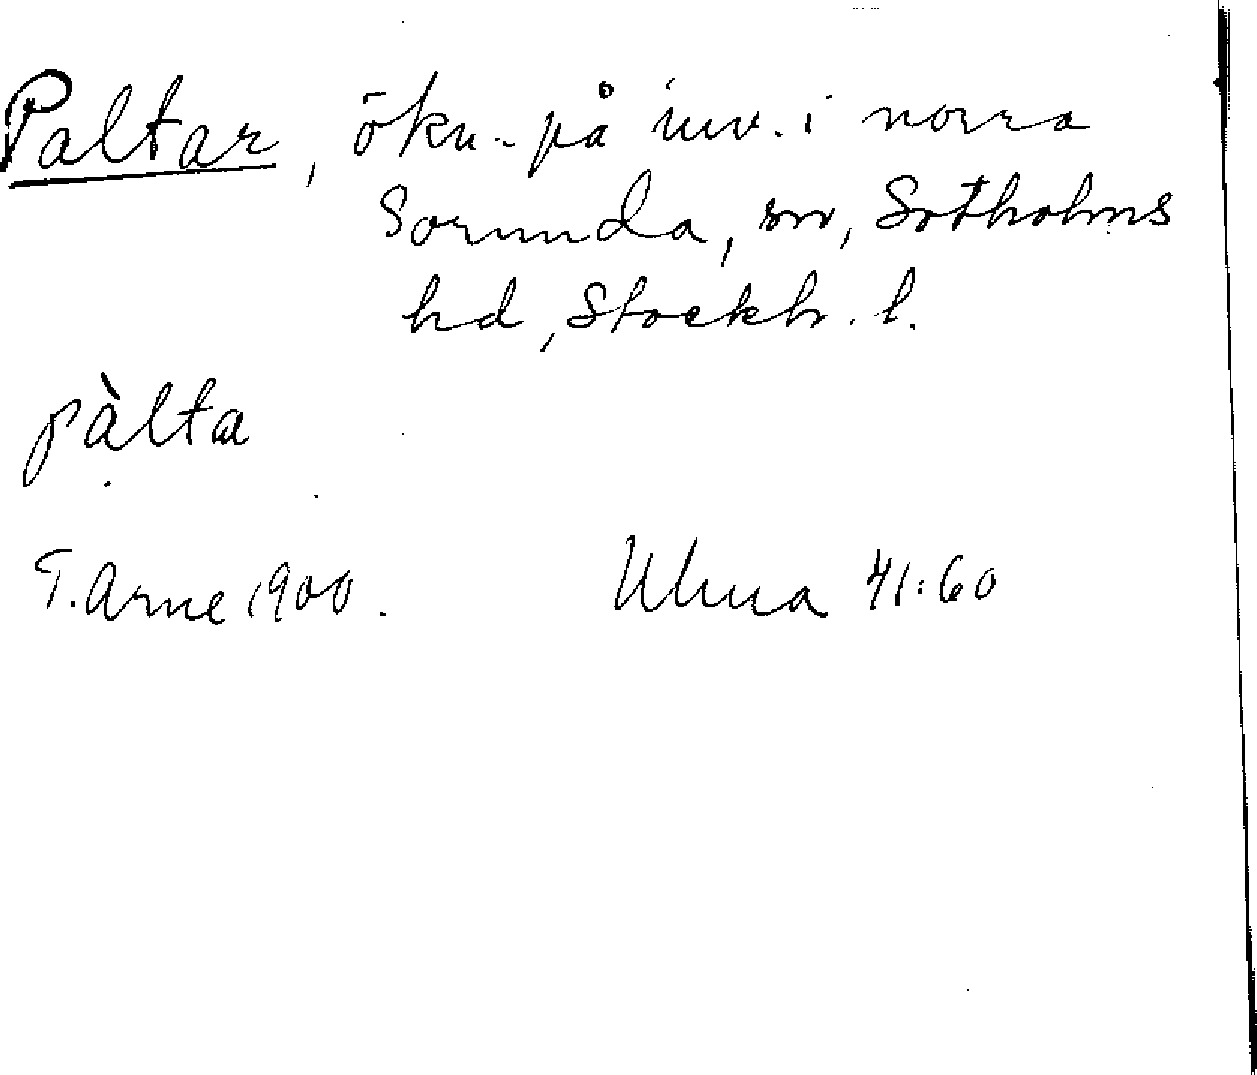 Paltar, ökn. på inv. i norra
Sorunda, sn, Sotholms
hd, Stockh. l.
pàlta
T. Arne 1900. Uluna 41:60